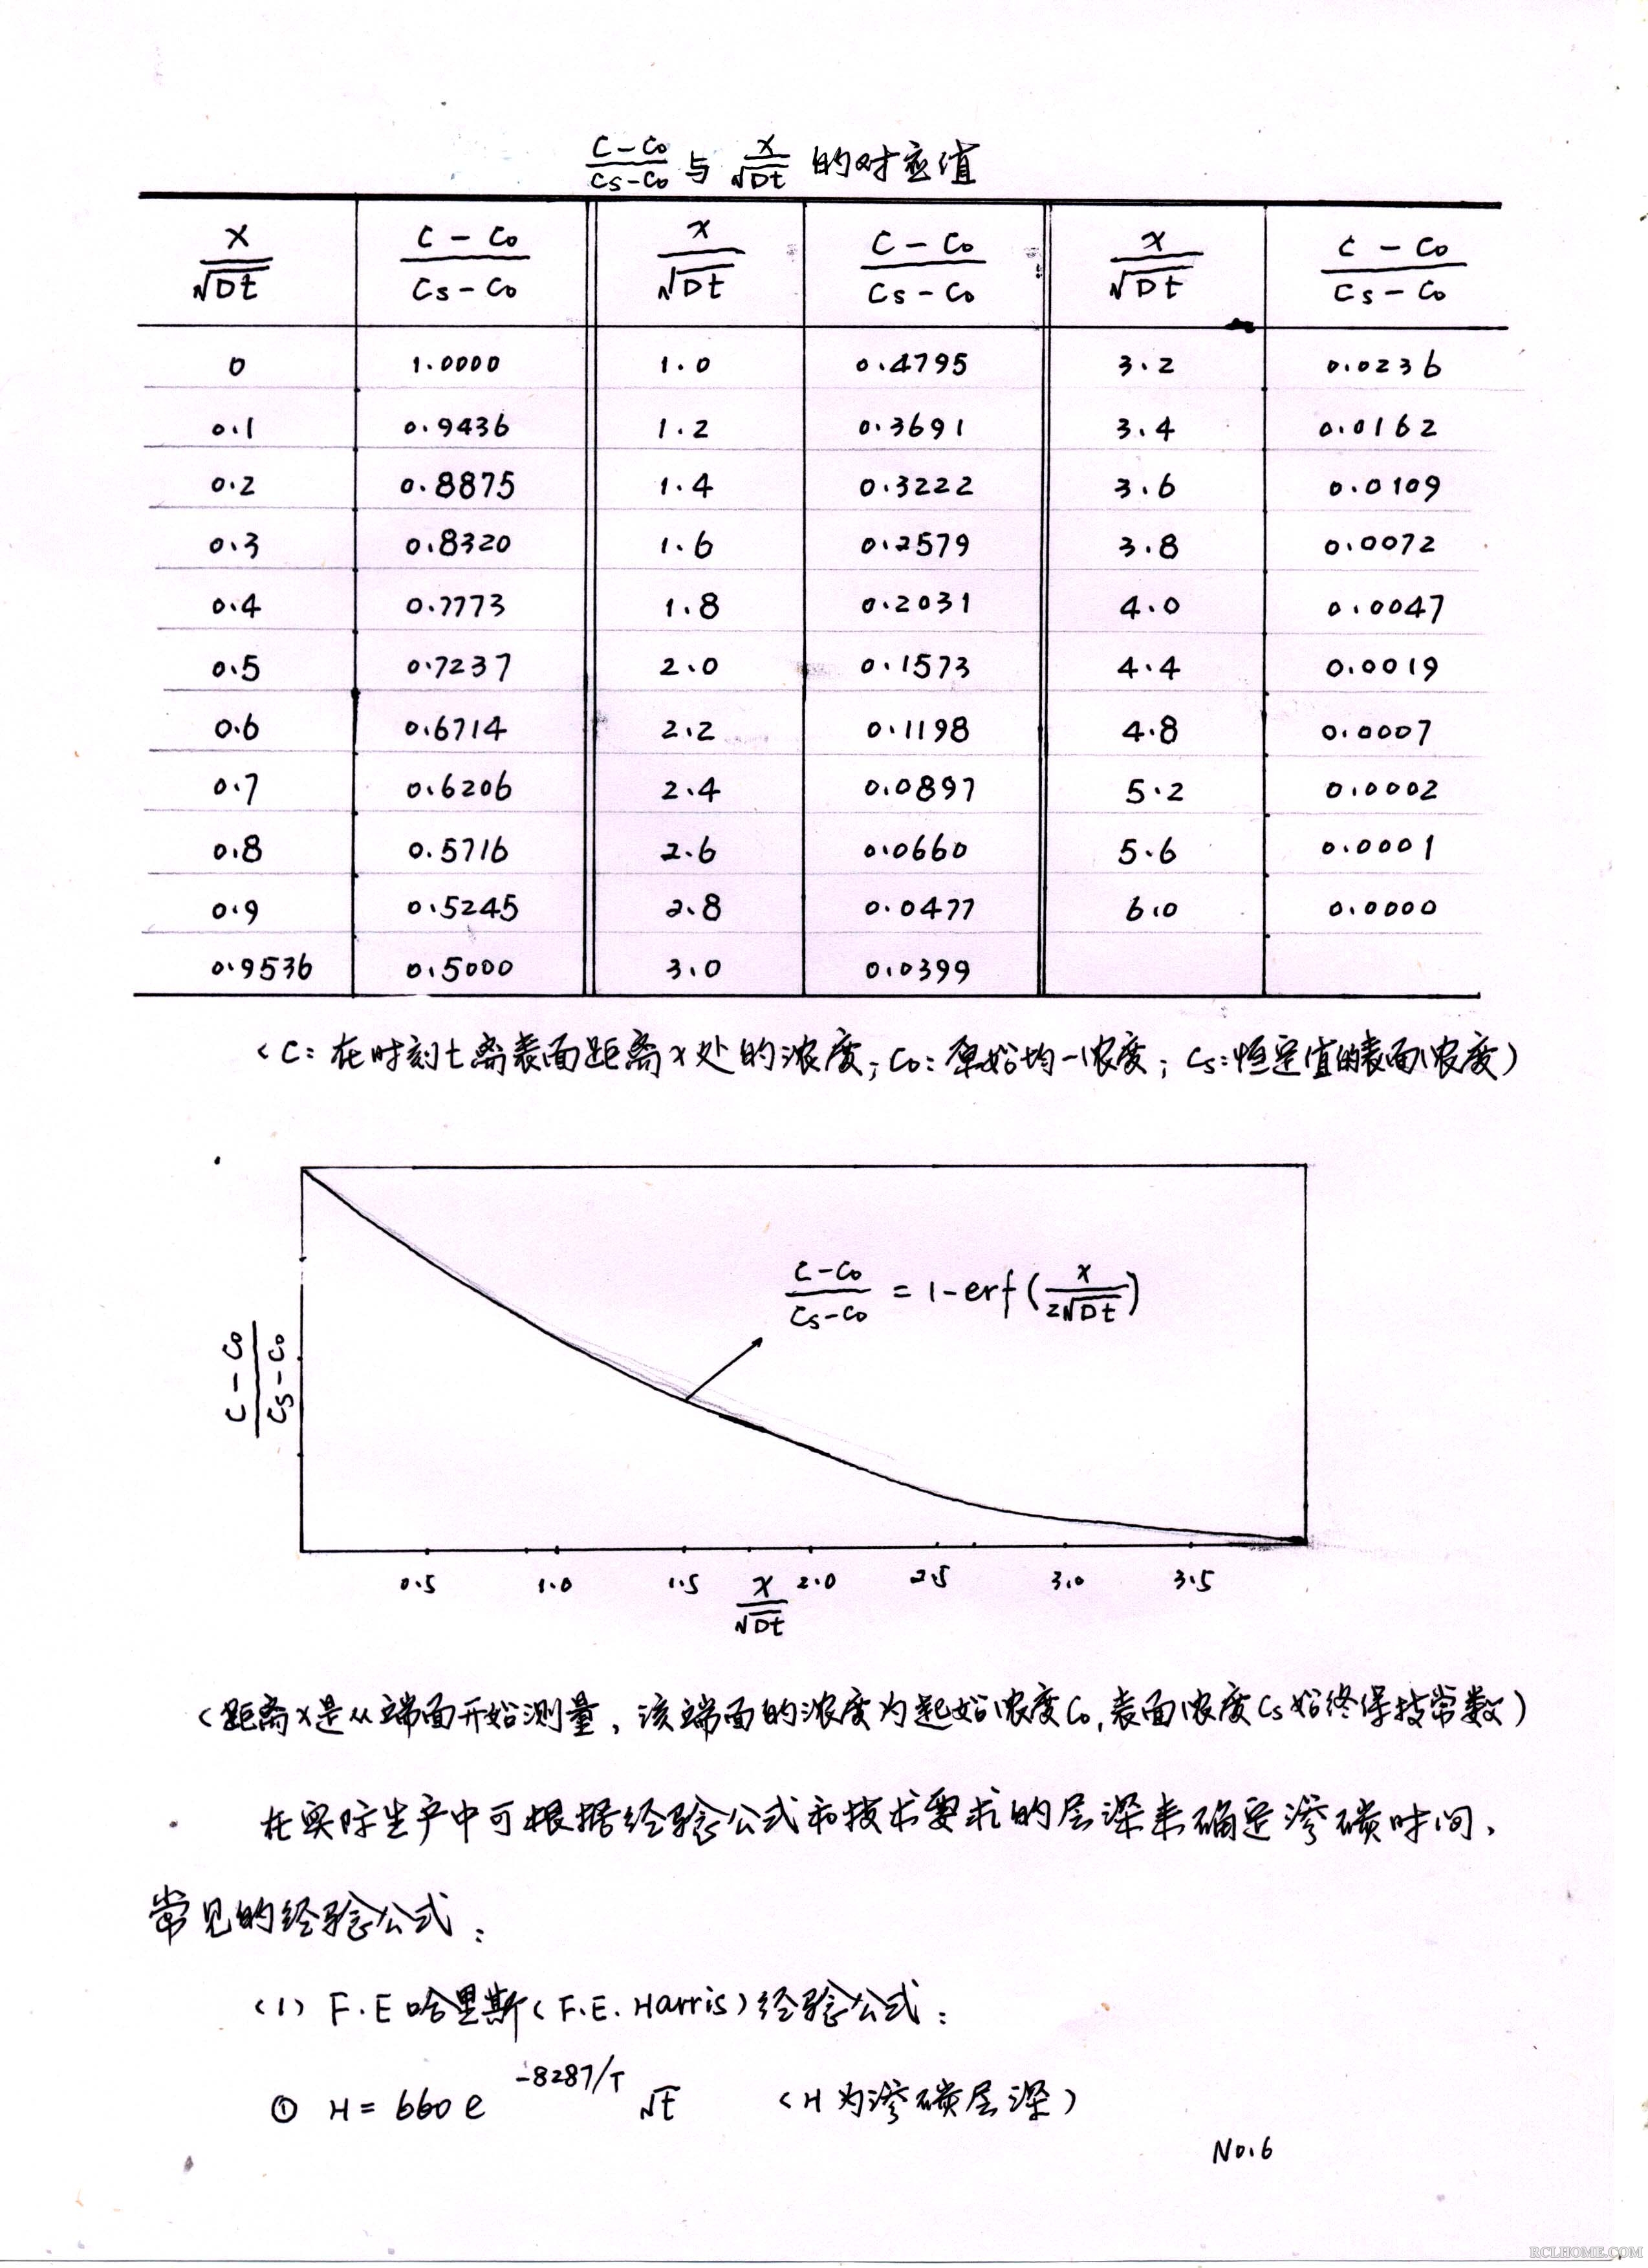 (C-C₀)/(Cs-C₀) 与 x/√Dt 的对应值
x/√Dt | (C-C₀)/(Cs-C₀) | x/√Dt | (C-C₀)/(Cs-C₀) | x/√Dt | (C-C₀)/(Cs-C₀)
0 | 1.0000 | 1.0 | 0.4795 | 3.2 | 0.0236
0.1 | 0.9436 | 1.2 | 0.3691 | 3.4 | 0.0162
0.2 | 0.8875 | 1.4 | 0.3222 | 3.6 | 0.0109
0.3 | 0.8320 | 1.6 | 0.2579 | 3.8 | 0.0072
0.4 | 0.7773 | 1.8 | 0.2031 | 4.0 | 0.0047
0.5 | 0.7237 | 2.0 | 0.1573 | 4.4 | 0.0019
0.6 | 0.6714 | 2.2 | 0.1198 | 4.8 | 0.0007
0.7 | 0.6206 | 2.4 | 0.0897 | 5.2 | 0.0002
0.8 | 0.5716 | 2.6 | 0.0660 | 5.6 | 0.0001
0.9 | 0.5245 | 2.8 | 0.0477 | 6.0 | 0.0000
0.9536 | 0.5000 | 3.0 | 0.0399
(C: 在时刻t离表面距离x处的浓度; C₀: 原始均一浓度; Cs: 恒定值的表面浓度)
(C-C₀)/(Cs-C₀) = 1-erf(x/2√Dt)
(C-C₀)/(Cs-C₀)
0.5 1.0 1.5 2.0 2.5 3.0 3.5
x/√Dt
(距离x是从端面开始测量，该端面的浓度为起始浓度C₀,表面浓度Cs始终保持常数)
在实际生产中可根据经验公式和技术要求的层深来确定渗碳时间，
常见的经验公式：
(1) F.E哈里斯(F.E. Harris)经验公式：
① H= 660 e^(-8287/T) √t (H为渗碳层深)
No.6
RCLHOME.COM